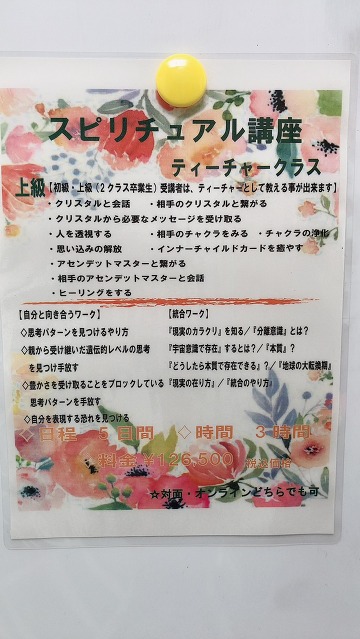 スピリチュアル講座
ティーチャークラス
上級【初級・上級（2クラス卒業生）受講者は、ティーチャーとして教える事が出来ます】
・クリスタルと会話　・相手のクリスタルと繋がる
・クリスタルから必要なメッセージを受け取る
・人を透視する　・相手のチャクラをみる　・チャクラの浄化
・思い込みの解放　・インナーチャイルドカードを癒やす
・アセンデットマスターと繋がる
・相手のアセンデットマスターと会話
・ヒーリングをする
【自分と向き合うワーク】
◇思考パターンを見つけるやり方
◇親から受け継いだ遺伝的レベルの思考
を見つけ手放す
◇豊かさを受け取ることをブロックしている
思考パターンを手放す
◇自分を表現する恐れを見つける
【統合ワーク】
『現実のカラクリ』を知る／『分離意識』とは？
『宇宙意識で存在』するとは？／『本質』？
『どうしたら本質で存在できる』？／『地球の大転換期』
『現実の在り方』／『統合のやり方』
◇日程　5日間　◇時間　3時間
◇料金 ￥126,500　税込価格
☆対面・オンラインどちらでも可